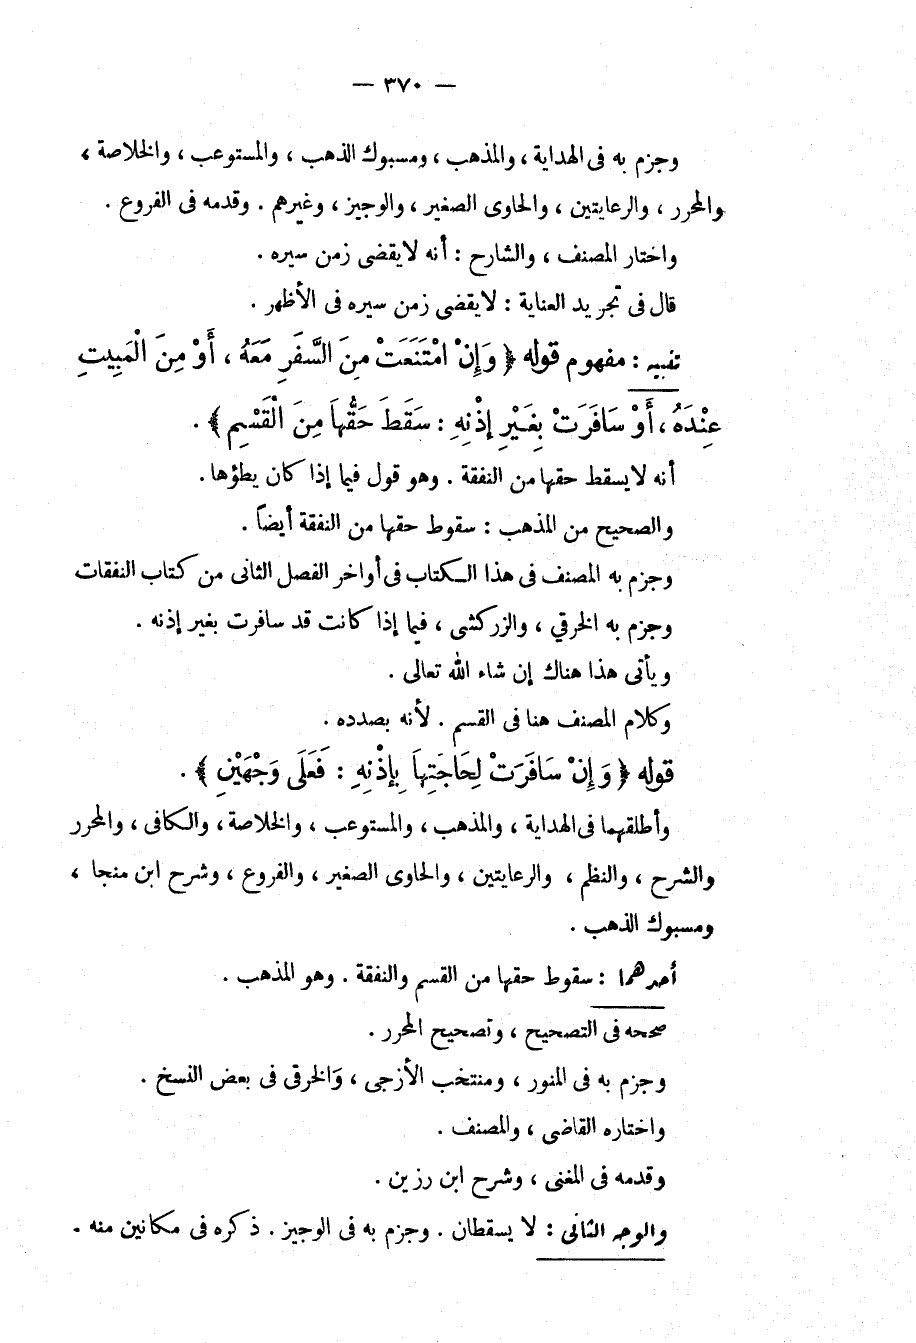 — ٣٧٠ —
وجزم به فى الهداية ، والمذهب ، ومسبوك الذهب ، والمستوعب ، والخلاصة ،
والمحرر ، والرعايتين ، والحاوى الصغير ، والوجيز ، وغيرهم . وقدمه فى الفروع .
واختار المصنف ، والشارح : أنه لا يقضى زمن سيره .
قال فى تجريد العناية : لا يقضى زمن سيره فى الأظهر .
تنبيه : مفهوم قوله ﴿ وَإِنْ امْتَنَعَتْ مِنَ السَّفَرِ مَعَهُ ، أَوْ مِنَ الْمَبِيتِ
عِنْدَهُ ، أَوْ سَافَرَتْ بِغَيْرِ إِذْنِهِ : سَقَطَ حَقُّهَا مِنَ الْقَسْمِ ﴾ .
أنه لا يسقط حقها من النفقة . وهو قول فيما إذا كان يطؤها .
والصحيح من المذهب : سقوط حقها من النفقة أيضاً .
وجزم به المصنف فى هذا الكتاب فى أواخر الفصل الثانى من كتاب النفقات
وجزم به الخرقي ، والزركشى ، فيما إذا كانت قد سافرت بغير إذنه .
ويأتى هذا هناك إن شاء الله تعالى .
وكلام المصنف هنا فى القسم . لأنه بصدده .
قوله ﴿ وَإِنْ سَافَرَتْ لِحَاجَتِهَا بِإِذْنِهِ : فَعَلَى وَجْهَيْنِ ﴾ .
وأطلقهما فى الهداية ، والمذهب ، والمستوعب ، والخلاصة ، والكافى ، والمحرر
والشرح ، والنظم ، والرعايتين ، والحاوى الصغير ، والفروع ، وشرح ابن منجا ،
ومسبوك الذهب .
أحدهما : سقوط حقها من القسم والنفقة . وهو المذهب .
صححه فى التصحيح ، وتصحيح المحرر .
وجزم به فى المنور ، ومنتخب الأزجى ، وَالخرقى فى بعض النسخ .
واختاره القاضى ، والمصنف .
وقدمه فى المغنى ، وشرح ابن رزين .
والوجه الثانى : لا يسقطان . وجزم به فى الوجيز . ذكره فى مكانين منه .